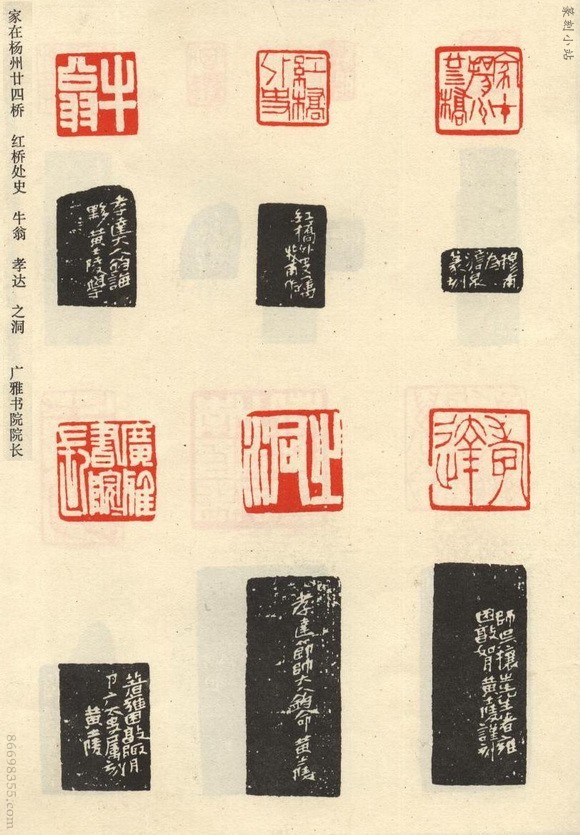 篆刻小站
紅橋
外史
牛
翁
穆甫
篆刻
紅橋外史屬
牧甫作
孝達大人鈞誨
黟黃士陵學
孝達
之洞
廣雅
書院
長
困敦如月黃士陵謹刻
孝達節帥大人鈞命黃士陵
著雍困敦陬月
黃士陵
家在杨州廿四桥 红桥处史 牛翁 孝达 之洞 广雅书院院长
86698355.com